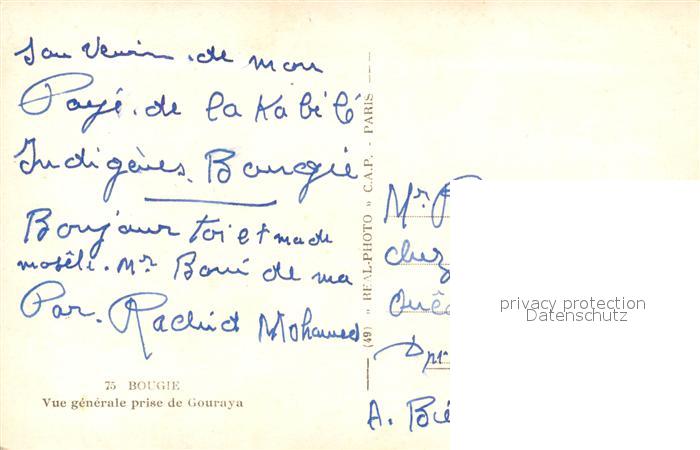 Sou Venir. de mon
Payé. de la Kabilé
Indigènes. Bougie
Bonjour toi et made
mosêle. Mr Boué de ma
Par. Rachid Mohamed
75 BOUGIE
Vue générale prise de Gouraya
(49) « REAL-PHOTO » C.A.P. - PARIS
Mr
chez
A.
privacy protection
Datenschutz